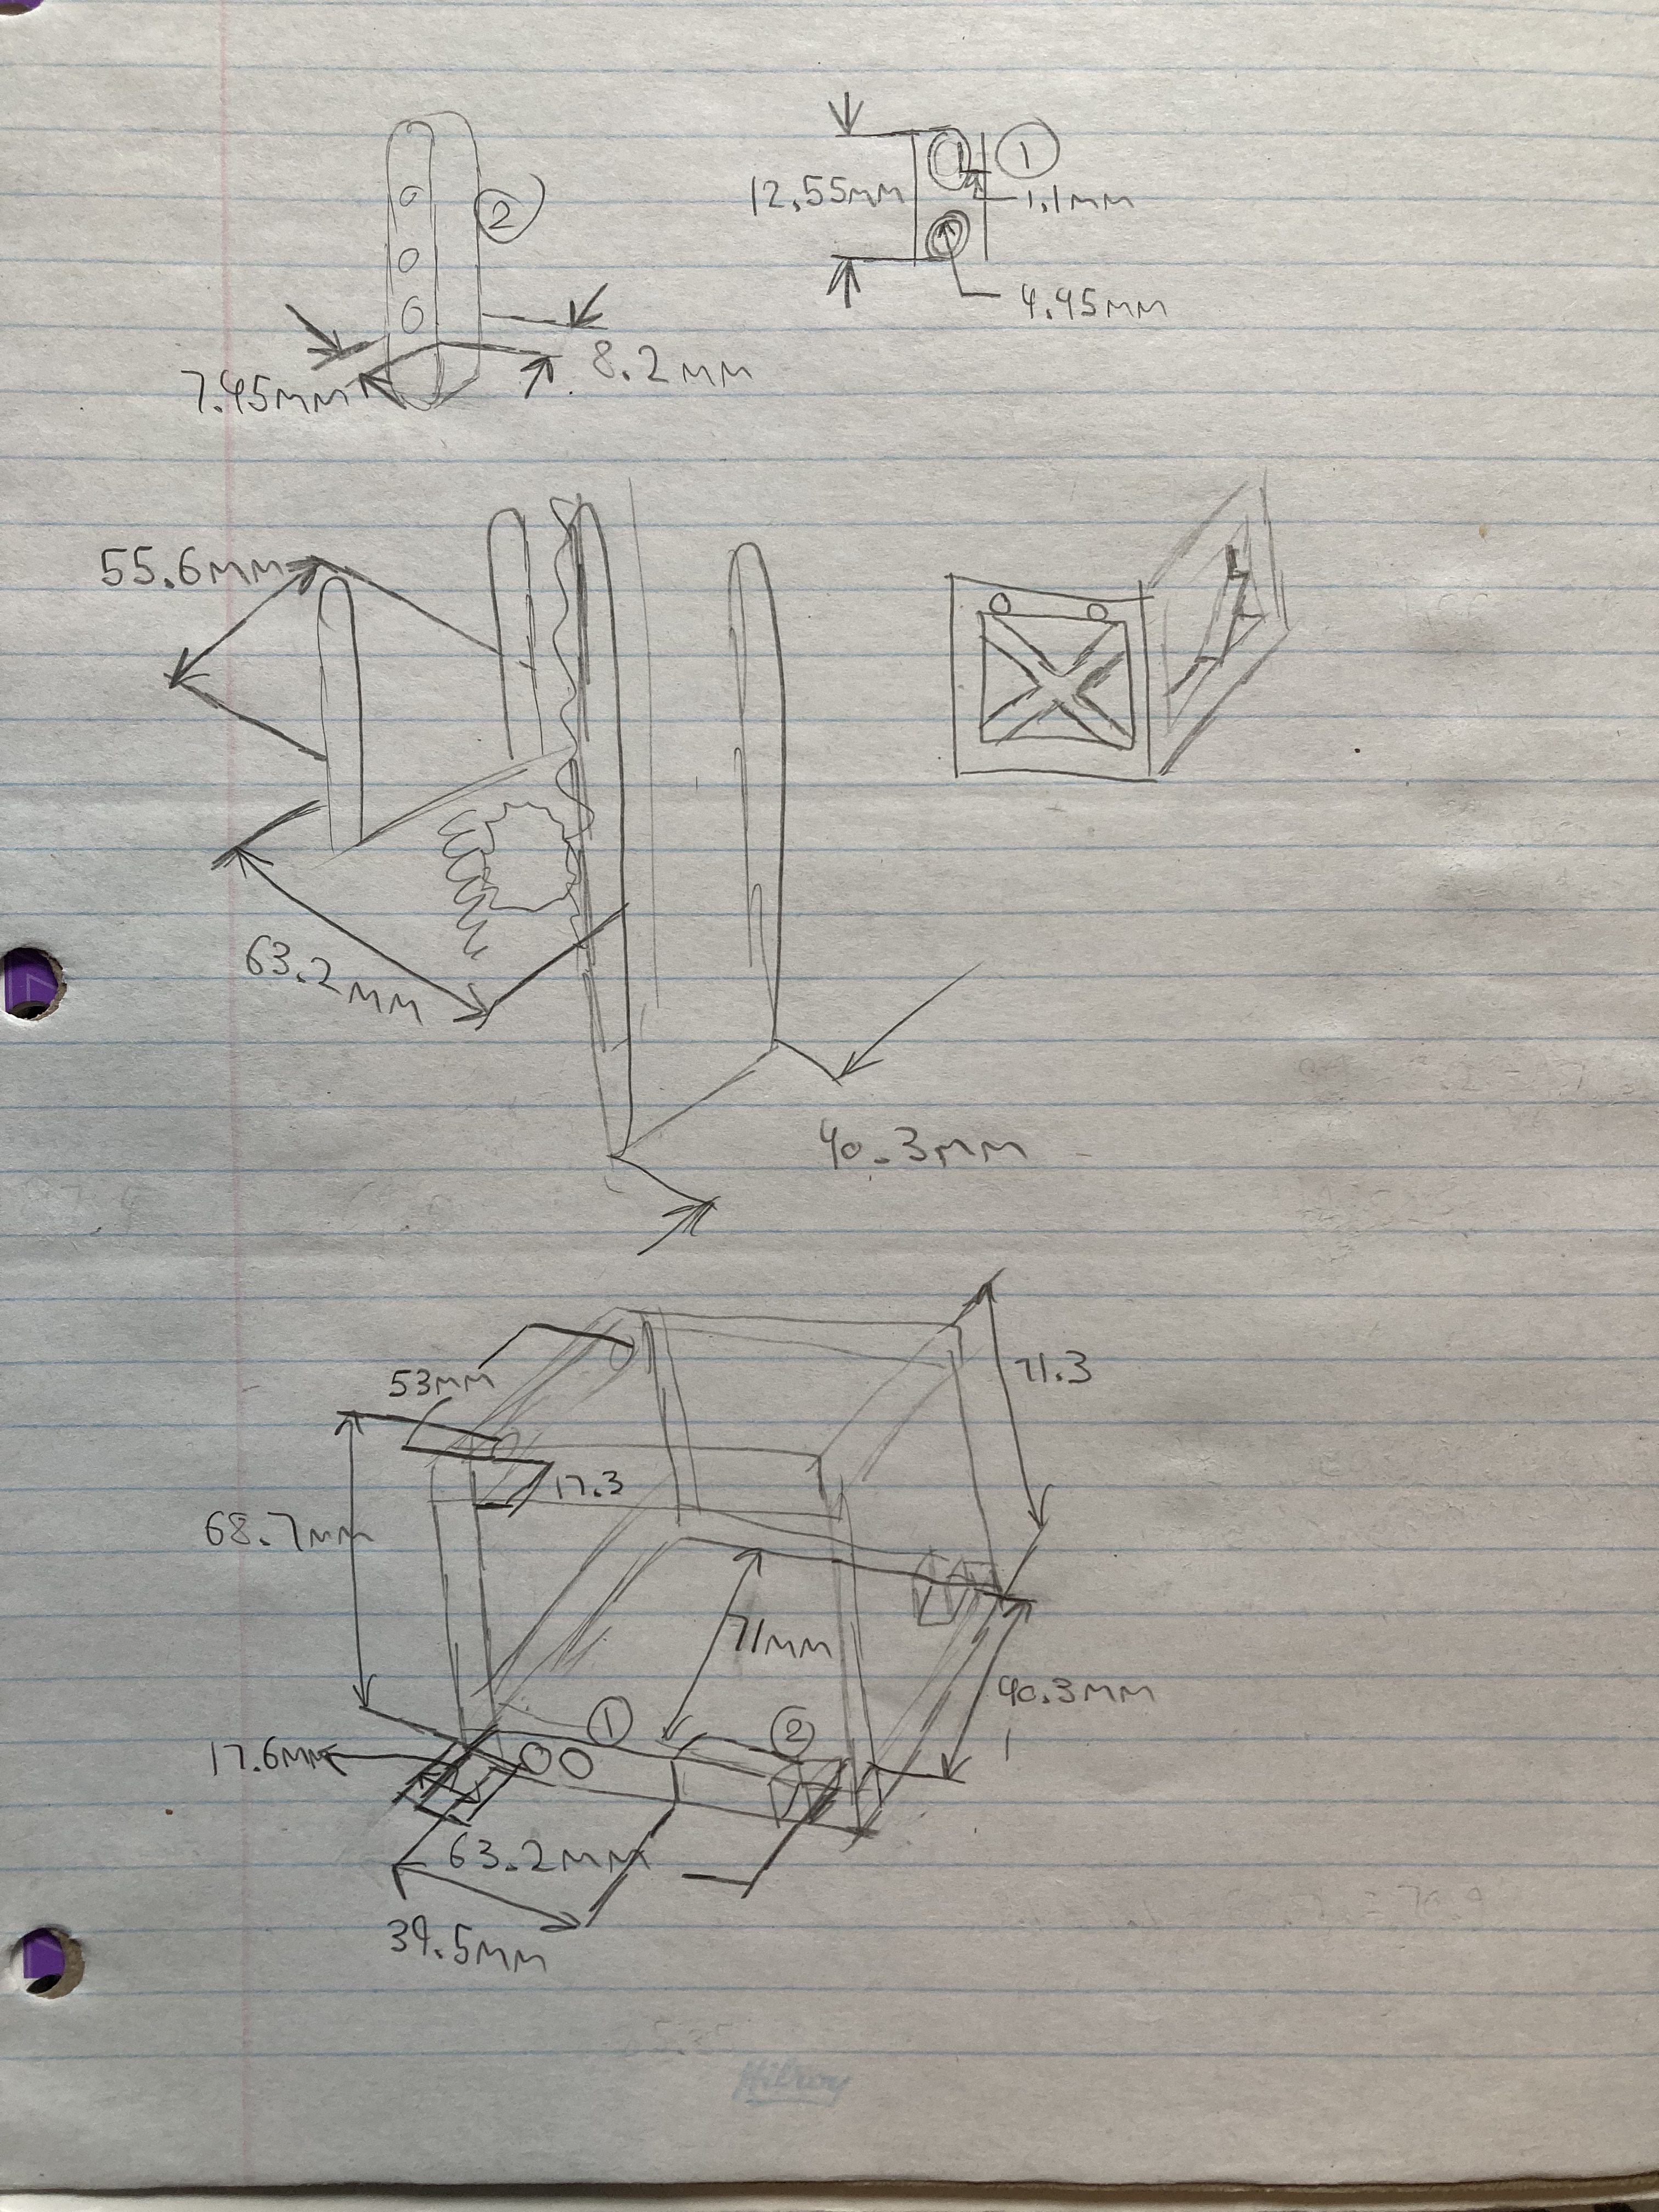 2
7.45mm
8.2mm
12.55mm
1
1.1mm
4.45mm
55.6mm
63.2mm
40.3mm
53mm
71.3
17.3
68.7mm
71mm
40.3mm
1
2
17.6mm
63.2mm
39.5mm
Hilroy